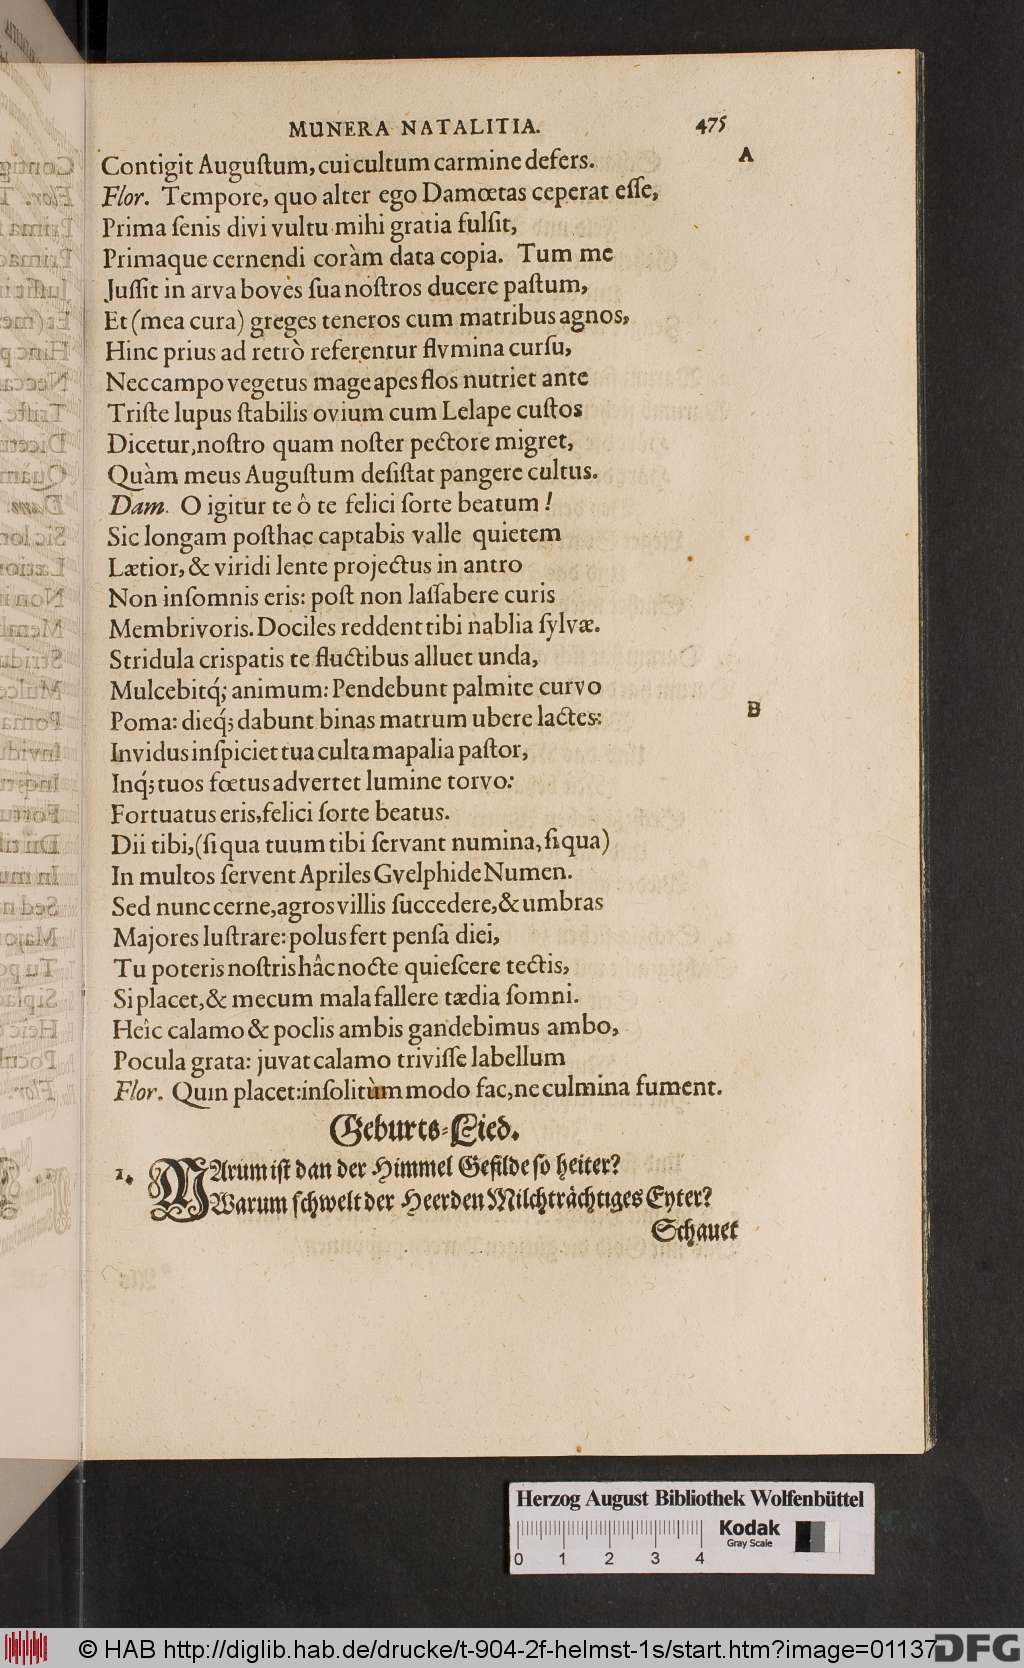 MUNERA NATALITIA. 475
A
Contigit Auguſtum, cui cultum carmine defers.
Flor. Tempore, quo alter ego Damœtas ceperat eſſe,
Prima ſenis divi vultu mihi gratia fulſit,
Primaque cernendi coràm data copia. Tum me
Juſſit in arva boves ſua noſtros ducere paſtum,
Et (mea cura) greges teneros cum matribus agnos,
Hinc prius ad retrò referentur flvmina curſu,
Nec campo vegetus mage apes flos nutriet ante
Triſte lupus ſtabilis ovium cum Lelape cuſtos
Dicetur, noſtro quam noſter pectore migret,
Quàm meus Auguſtum deſiſtat pangere cultus.
Dam. O igitur te ô te felici ſorte beatum!
Sic longam poſthac captabis valle quietem
Lætior, & viridi lente projectus in antro
Non inſomnis eris: poſt non laſſabere curis
Membrivoris. Dociles reddent tibi nablia ſylvæ.
Stridula criſpatis te fluctibus alluet unda,
Mulcebitq́; animum: Pendebunt palmite curvo
B
Poma: dieq́; dabunt binas matrum ubere lactes:
Invidus inſpiciet tua culta mapalia paſtor,
Inq́; tuos fœtus advertet lumine torvo:
Fortuatus eris, felici ſorte beatus.
Dii tibi, (ſi qua tuum tibi ſervant numina, ſi qua)
In multos ſervent Apriles Gvelphide Numen.
Sed nunc cerne, agros villis ſuccedere, & umbras
Majores luſtrare: polus fert penſa diei,
Tu poteris noſtris hâc nocte quieſcere tectis,
Si placet, & mecum mala fallere tædia ſomni.
Heîc calamo & poclis ambis gandebimus ambo,
Pocula grata: juvat calamo triviſſe labellum
Flor. Quin placet: inſolitùm modo fac, ne culmina fument.
Geburts-Lied.
1. WArum iſt dan der Himmel Gefilde ſo heiter?
Warum ſchwelt der Heerden Milchträchtiges Eyter?
Schauet
Herzog August Bibliothek Wolfenbüttel
0 1 2 3 4
Kodak
Gray Scale
© HAB http://diglib.hab.de/drucke/t-904-2f-helmst-1s/start.htm?image=01137
DFG